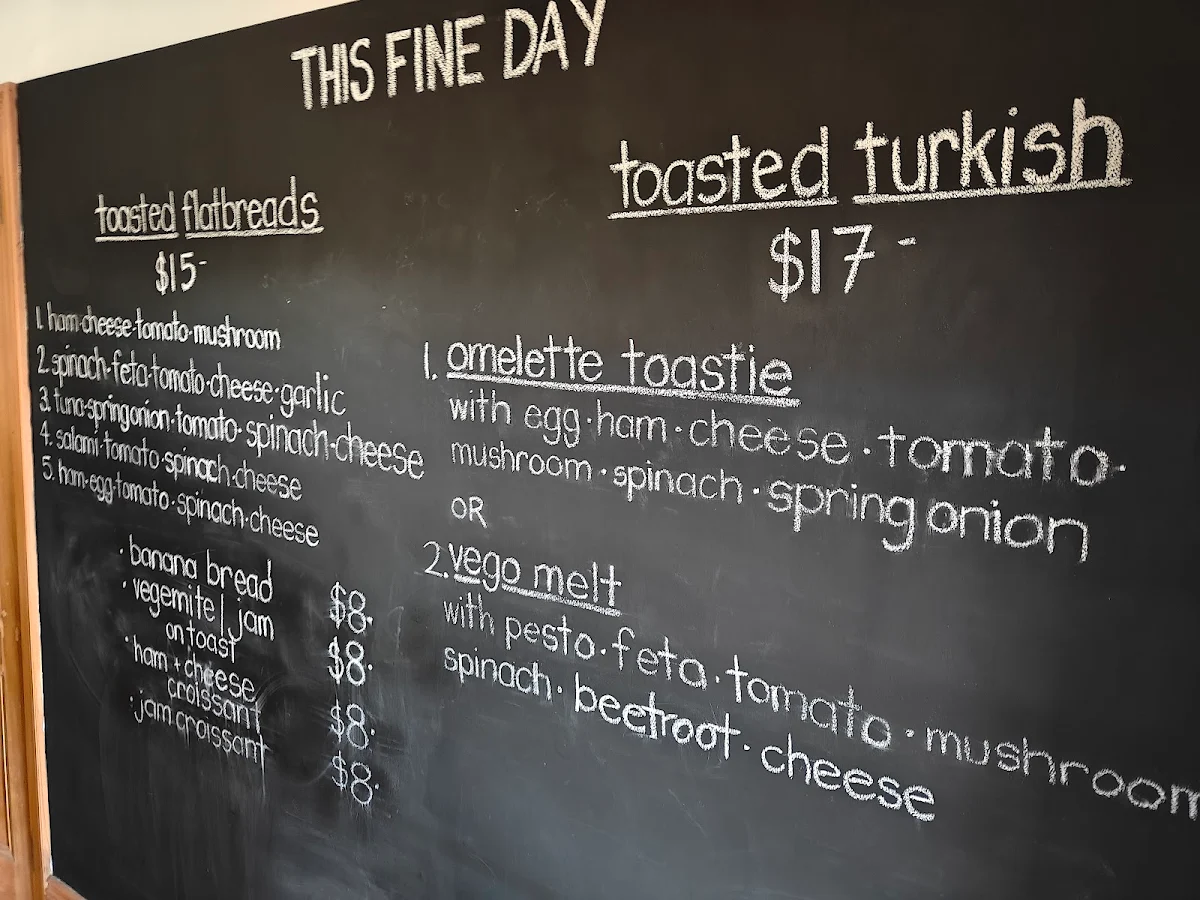 THIS FINE DAY
toasted flatbreads
$15-
1. ham·cheese·tomato·mushroom
2. spinach·feta·tomato·cheese·garlic
3. tuna·spring onion·tomato·spinach·cheese
4. salami·tomato·spinach·cheese
5. ham·egg·tomato·spinach·cheese
· banana bread $8·
· vegemite/jam
on toast $8·
· ham + cheese
croissant $8·
· jam croissant $8·
toasted turkish
$17-
1. omelette toastie
with egg·ham·cheese·tomato·
mushroom·spinach·spring onion
OR
2. vego melt
with pesto·feta·tomato·mushroom
spinach·beetroot·cheese